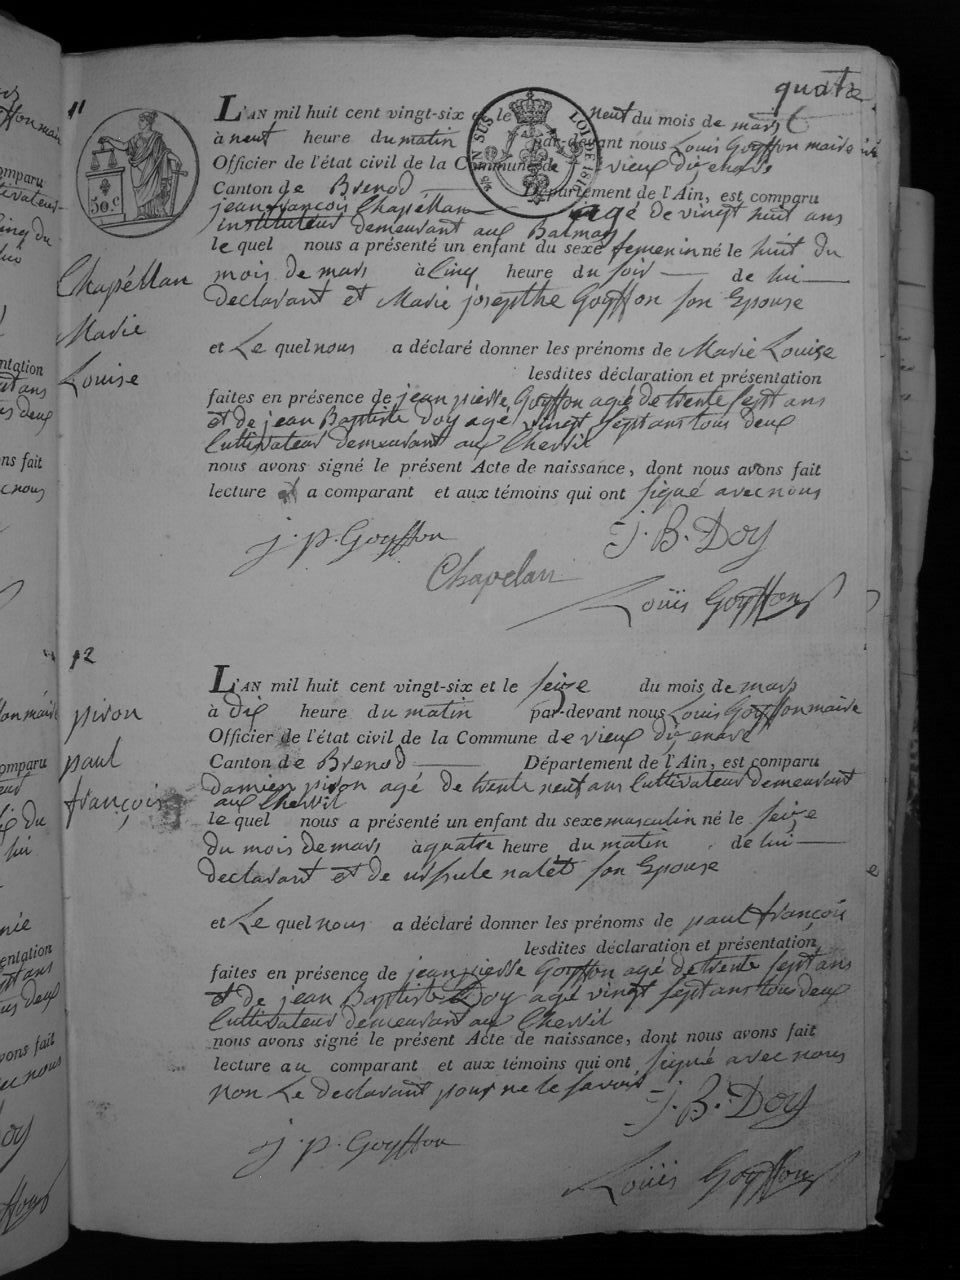 quatre
11
50 c
L'AN mil huit cent vingt-six et le neuf du mois de mars
à neuf heure du matin par-devant nous Louis Goyffon maire
Officier de l'état civil de la Commune de vieux dizenave
Canton de Brenod Département de l'Ain, est comparu
jean françois Chapéllan agé de vingt huit ans
instituteur demeurant aux Balmay
le quel nous a présenté un enfant du sexe femenin né le huit du
mois de mars à Cinq heure du soir de lui
declarant et Marie josepthe Goyffon son Epouse
Chapéllan
Marie
Louise
et Le quel nous a déclaré donner les prénoms de Marie Louise
lesdites déclaration et présentation
faites en présence de jean pierre Goyffon agé de trente sept ans
et de jean Baptiste Doy agé vingt sept ans tous deux
Cultivateur demeurant aux Chervil
nous avons signé le présent Acte de naissance, dont nous avons fait
lecture a comparant et aux témoins qui ont signé avec nous
j. p. Goyffon
J. B. Doy
Chapelan
Louïs Goyffon
12
L'AN mil huit cent vingt-six et le seize du mois de mars
à dix heure du matin par-devant nous Louis Goyffon maire
Officier de l'état civil de la Commune de vieux dizenave
Canton de Brenod Département de l'Ain, est comparu
Damien piron agé de trente neuf ans Cultivateur demeurant
aux Chervil
le quel nous a présenté un enfant du sexe masculin né le seize
du mois de mars à quatre heure du matin de lui
declarant et de ursule natét son Epouse
piron
paul
françois
et Le quel nous a déclaré donner les prénoms de paul françois
lesdites déclaration et présentation
faites en présence de jean pierre Goyffon agé de trente sept ans
et de jean Baptiste Doy agé vingt sept ans tous deux
Cultivateur demeurant aux Chervil
nous avons signé le présent Acte de naissance, dont nous avons fait
lecture au comparant et aux témoins qui ont signé avec nous
non Le declarant pour ne le savoir
J. B. Doy
j. p. Goyffon
Louïs Goyffon